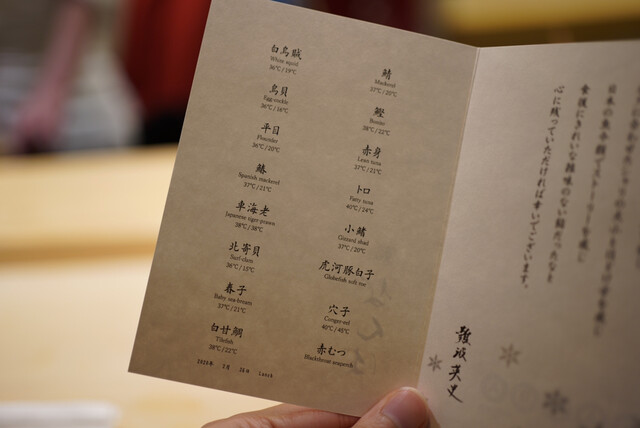 白烏賊
White squid
36℃/19℃
鳥貝
Egg cockle
36℃/18℃
平目
Flounder
36℃/20℃
鰆
Spanish mackerel
37℃/21℃
車海老
Japanese tiger prawn
38℃/36℃
北寄貝
Surf clam
36℃/15℃
春子
Baby sea bream
37℃/21℃
白甘鯛
Tilefish
38℃/22℃
鯖
Mackerel
37℃/20℃
鰹
Bonito
38℃/22℃
赤身
Lean tuna
37℃/21℃
トロ
Fatty tuna
40℃/24℃
小鰭
Gizzard shad
37℃/20℃
虎河豚白子
Globefish soft roe
穴子
Conger eel
40℃/45℃
赤むつ
Blackthroat seaperch
Lunch
日本の魚や鮨でストーリーを感じ
食後にきれいな推味のない鮨だったなと
心に残っていただければ幸いでございます。